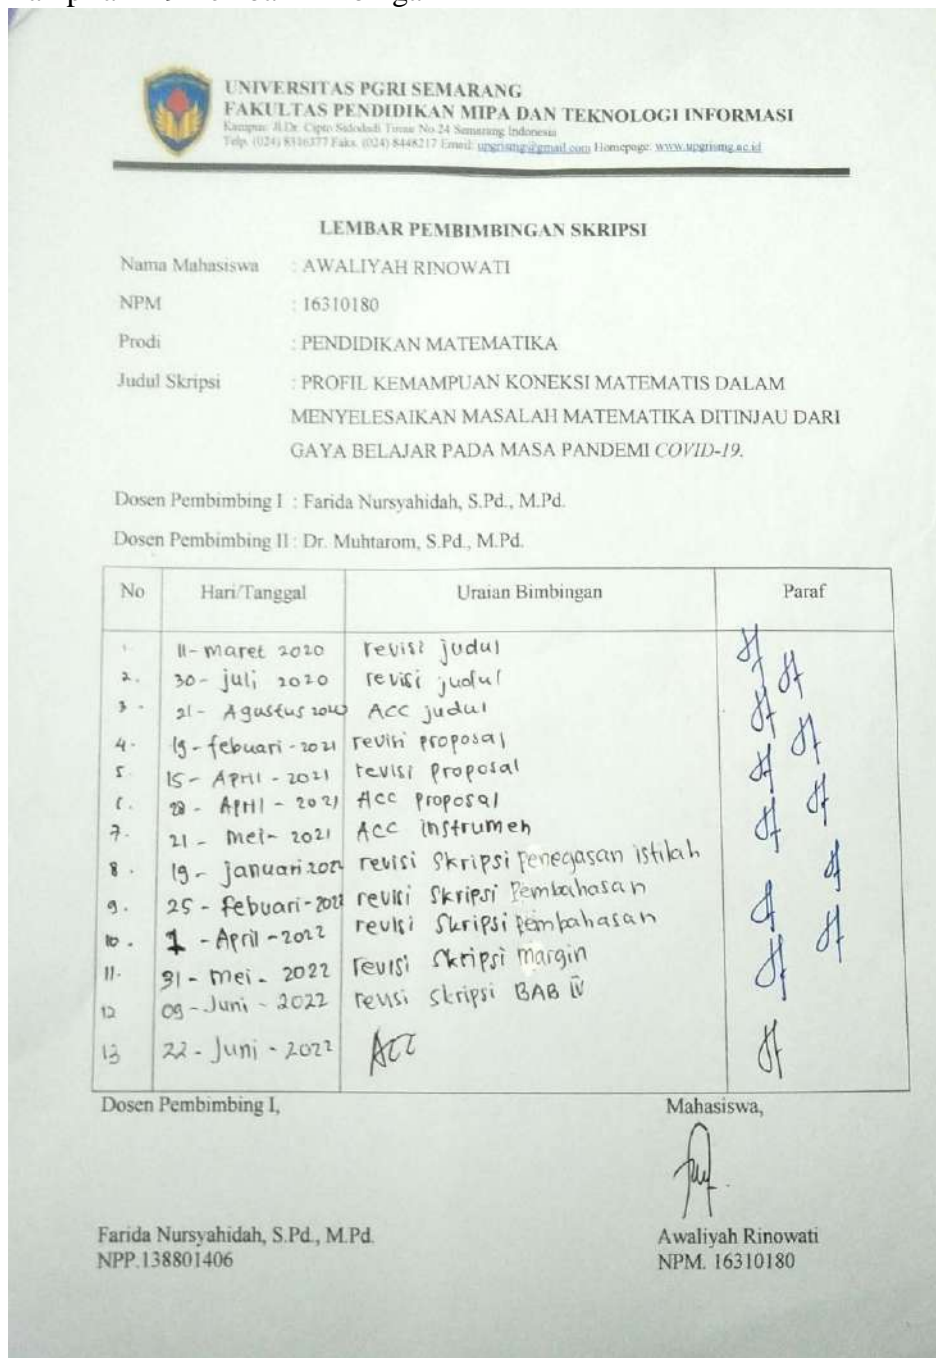 UNIVERSITAS PGRI SEMARANG
FAKULTAS PENDIDIKAN MIPA DAN TEKNOLOGI INFORMASI
Kampus: Jl.Dr. Cipto-Sidodadi Timur No.24 Semarang Indonesia
Telp. (024) 8316377 Faks. (024) 8448217 Email: upgrismg@gmail.com Homepage: www.upgrismg.ac.id
LEMBAR PEMBIMBINGAN SKRIPSI
Nama Mahasiswa : AWALIYAH RINOWATI
NPM : 16310180
Prodi : PENDIDIKAN MATEMATIKA
Judul Skripsi : PROFIL KEMAMPUAN KONEKSI MATEMATIS DALAM
MENYELESAIKAN MASALAH MATEMATIKA DITINJAU DARI
GAYA BELAJAR PADA MASA PANDEMI COVID-19.
Dosen Pembimbing I : Farida Nursyahidah, S.Pd., M.Pd.
Dosen Pembimbing II : Dr. Muhtarom, S.Pd., M.Pd.
No Hari/Tanggal Uraian Bimbingan Paraf
1. 11- maret 2020 revisi judul
2. 30- juli 2020 revisi judul
3. 21- Agustus 2020 ACC judul
4. 19- febuari - 2021 revisi proposal
5. 15- April - 2021 revisi proposal
6. 28 - April - 2021 Acc proposal
7. 21 - mei- 2021 ACC instrumen
8. 19- januari 2022 revisi Skripsi penegasan istilah
9. 25 - febuari-2022 revisi Skripsi Pembahasan
10. 1 - April - 2022 revisi Skripsi pembahasan
11. 31 - mei - 2022 revisi Skripsi margin
12 09 - Juni - 2022 revisi skripsi BAB IV
13 22 - Juni - 2022 ACC
Dosen Pembimbing I, Mahasiswa,
Farida Nursyahidah, S.Pd., M.Pd. Awaliyah Rinowati
NPP.138801406 NPM. 16310180